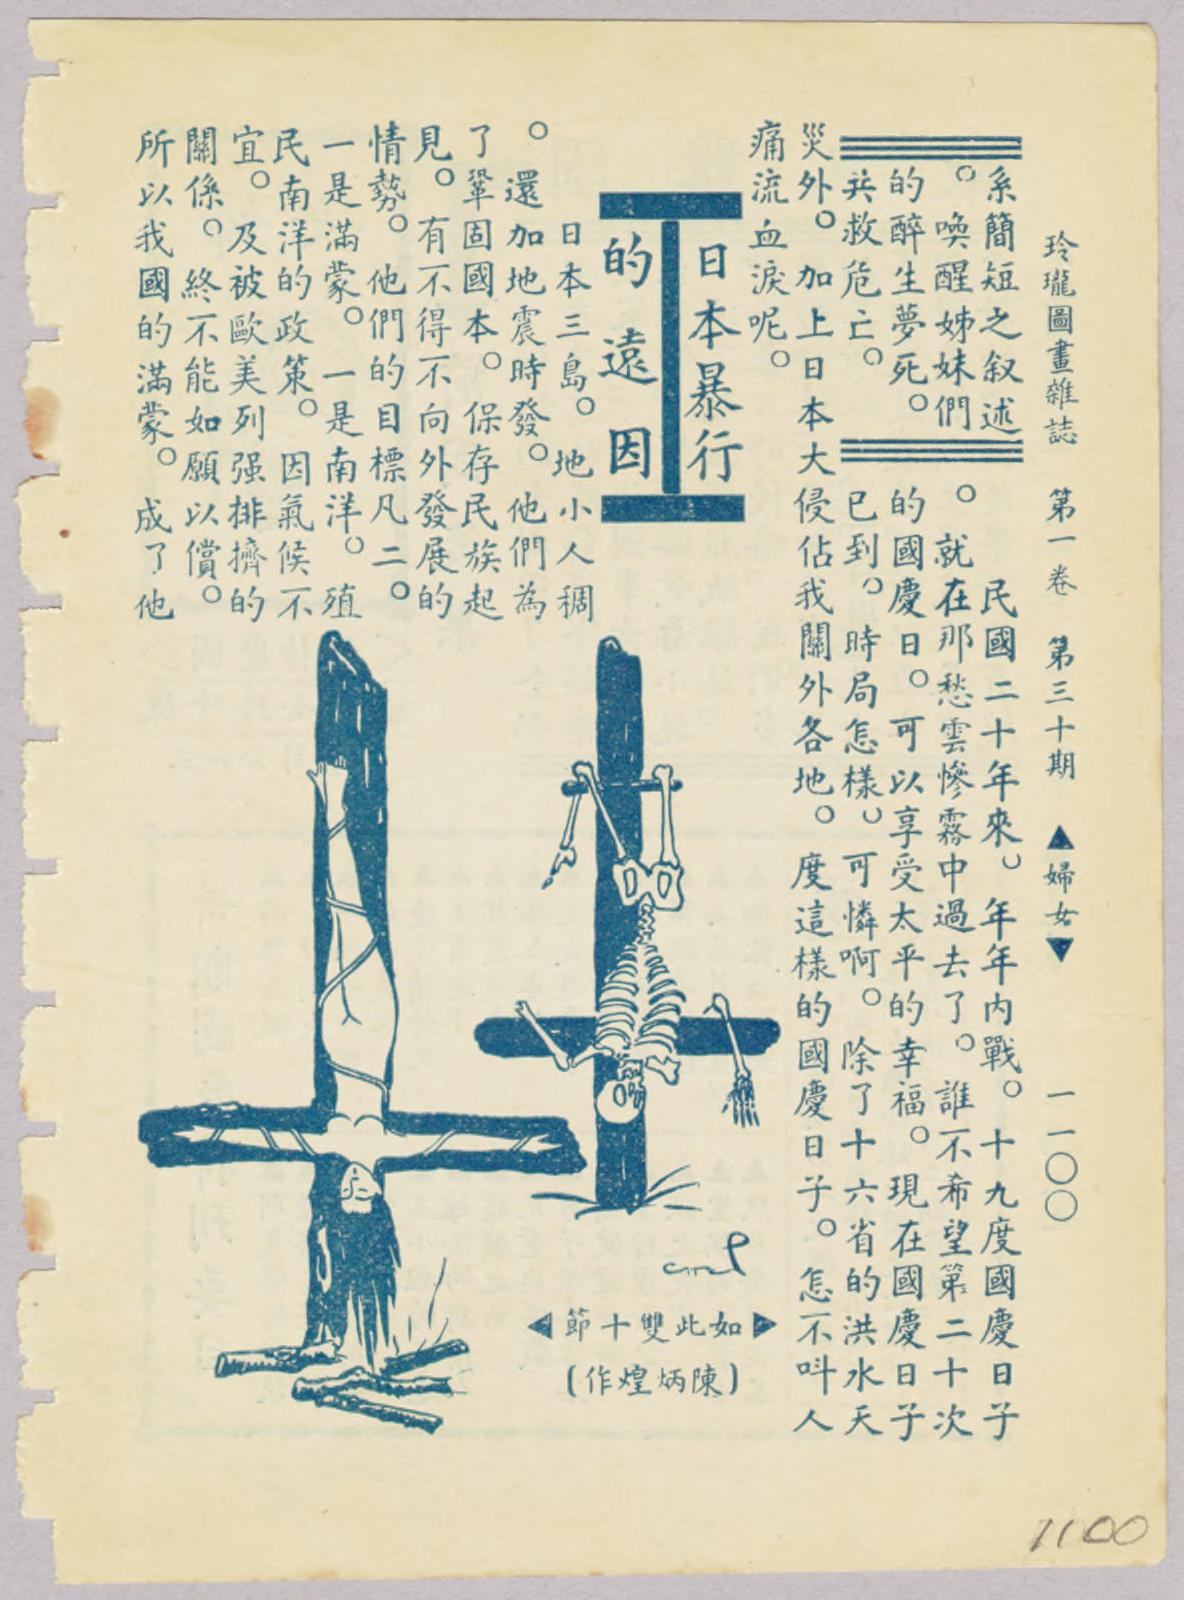 玲瓏圖畫雜誌 第一卷 第三十期 ▲婦女▼ 一一〇〇
系簡短之叙述
。喚醒姊妹們
的醉生夢死。
共救危亡。
民國二十年來。年年內戰。十九度國慶日子
。就在那愁雲慘霧中過去了。誰不希望第二十次
的國慶日。可以享受太平的幸福。現在國慶日子
已到。時局怎樣。可憐啊。除了十六省的洪水天
災外。加上日本大侵佔我關外各地。度這樣的國慶日子。怎不呌人
痛流血淚呢。
日本暴行
的遠因
日本三島。地小人稠
。還加地震時發。他們為
了鞏固國本。保存民族起
見。有不得不向外發展的
情勢。他們的目標凡二。
一是滿蒙。一是南洋。殖
民南洋的政策。因氣候不
宜。及被歐美列强排擠的
關係。終不能如願以償。
所以我國的滿蒙。成了他
◀節十雙此如▶
(作煌炳陳)
1100